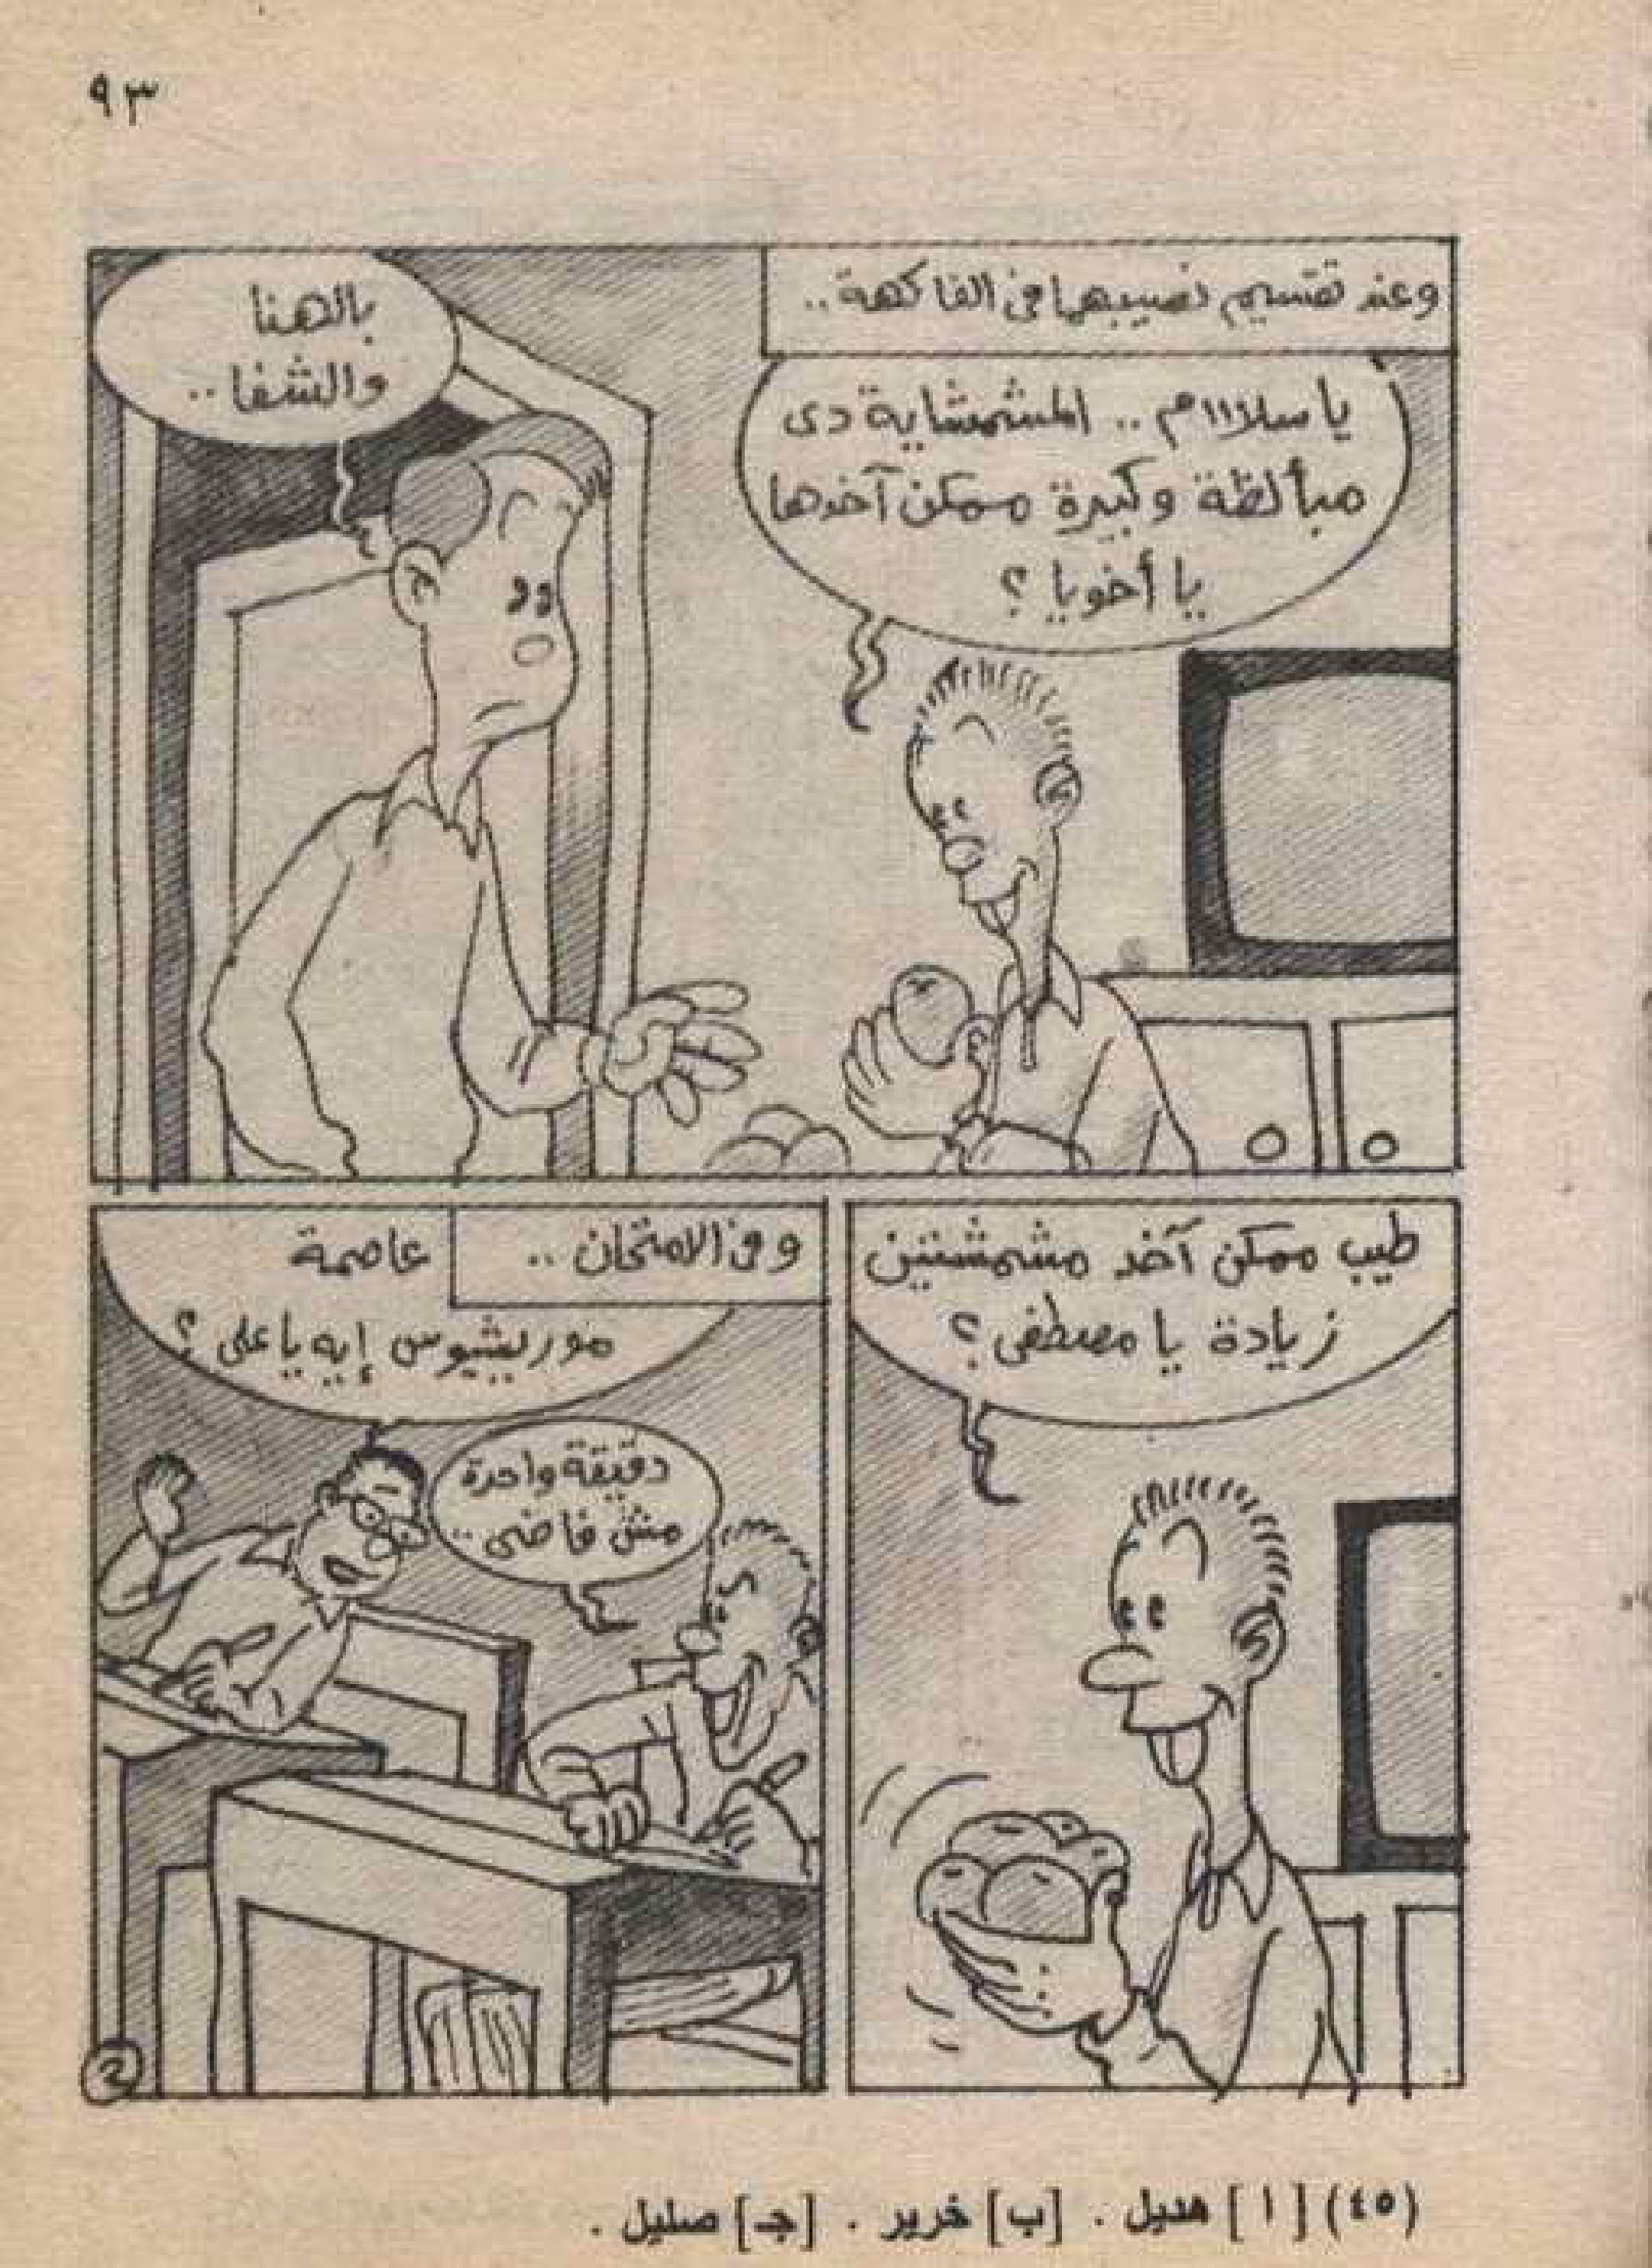 ٩٣
وعند تقسيم نصيبهما فى الفاكهة..
يا سلاااام .. المشمشاية دى
مبألظة وكبيرة ممكن آخدها
يا أخويا ؟
بالهنا
والشفا ..
طيب ممكن آخد مشمشتين
زيادة يا مصطفى ؟
وفى الامتحان ..
عاصمة
موريشيوس إيه يا على ؟
دقيقة واحدة
مش فاضى ..
(٤٥) [ ا ] هديل . [ب] خرير . [جـ] صليل .